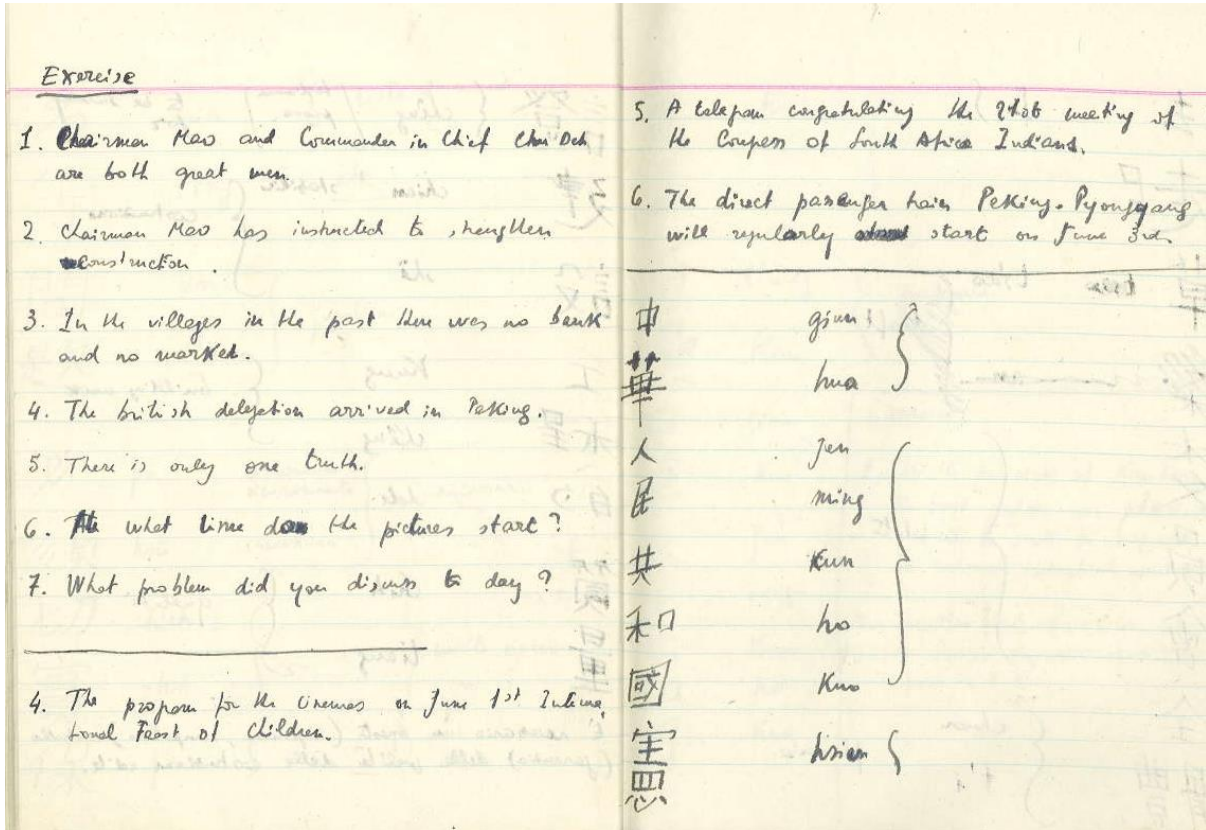 Exercise
1. Chairman Mao and Commander in Chief Chu Deh
are both great men.
2. Chairman Mao has instructed to strengthen
construction.
3. In the villages in the past there was no bank
and no market.
4. The british delegation arrived in Peking.
5. There is only one truth.
6. At what time does the pictures start?
7. What problem did you discuss to day?
4. The program for the cinemas on June 1st Interna
tional Feast of Children.
5. A telegram congratulating the 21st meeting of
the Congress of South Africa Indians.
6. The direct passenger train Peking-Pyongyang
will regularly start on June 3rd.
中
華 hua
人 jen
民 ming
共 kun
和 ho
國 kuo
hsien